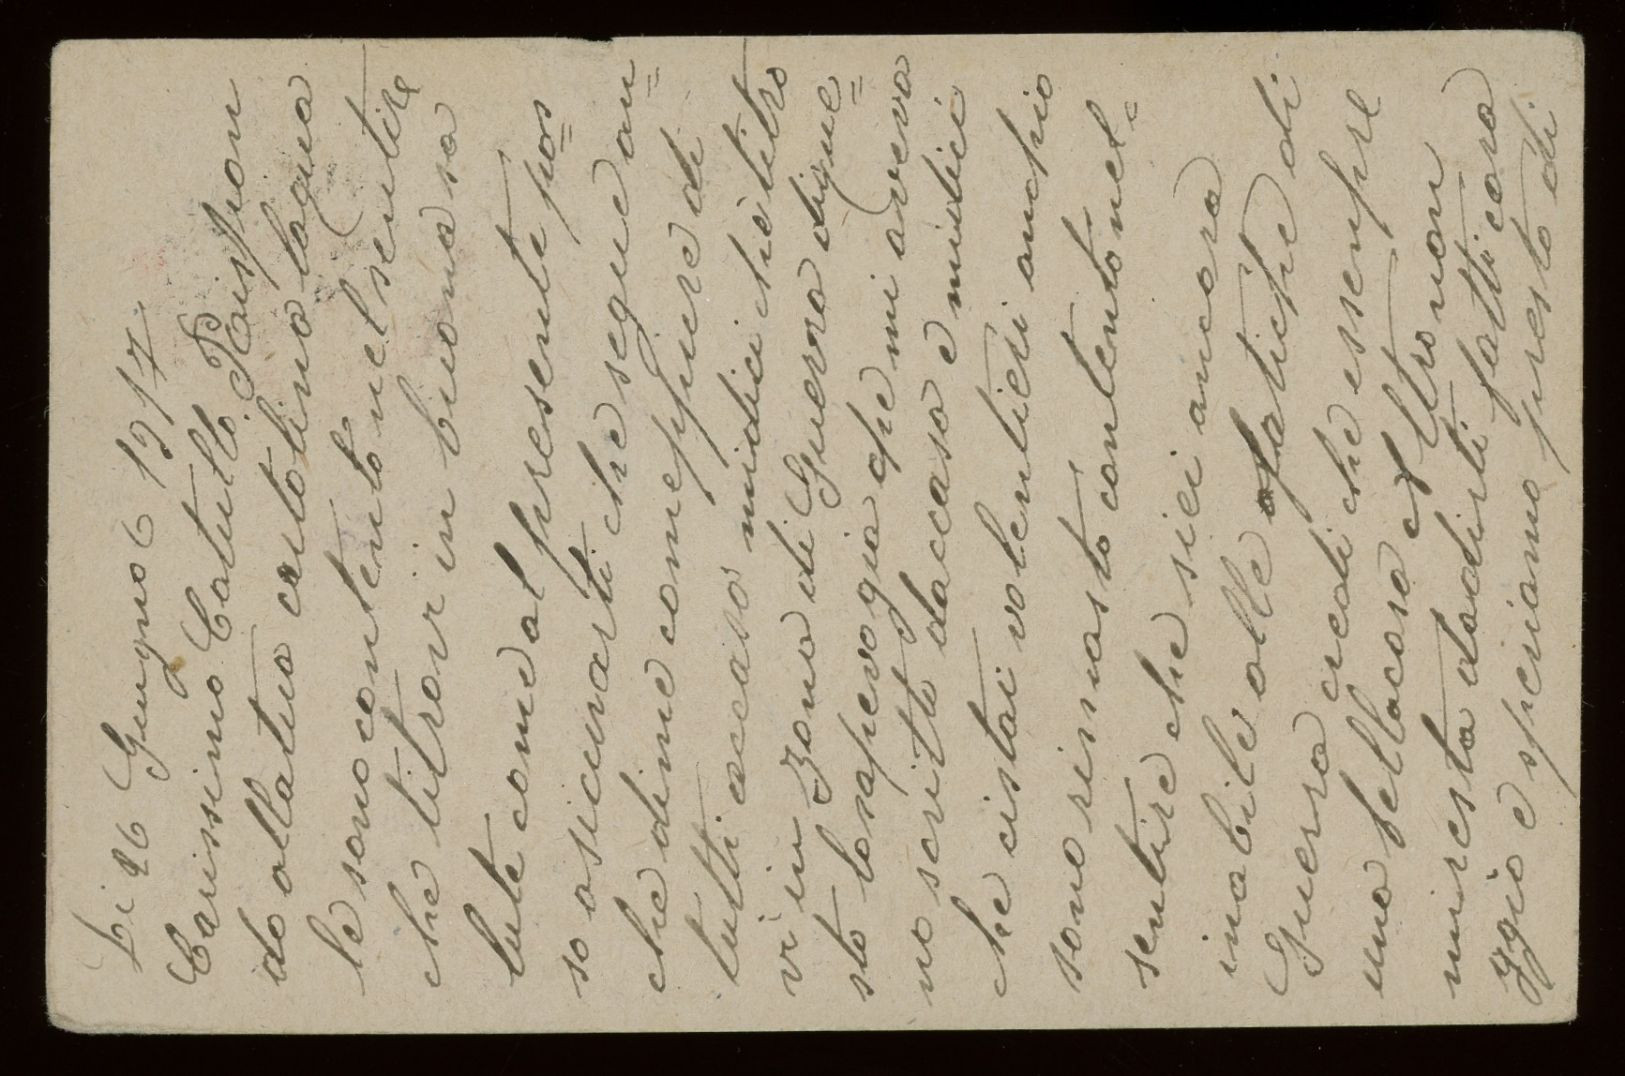 Li 26 Giugno 1917
Carissimo Catullo Rispon
do alla tua cartolina laqua
le sono contento nel sentire
che titrovi in buona sa
lute come al presente pos=
so asicurarti che segue an=
che dime come pure di
tutti accaso midici chetitro
vi in Zona di Guerra dique=
sto losapevo gia che mi aveva
no scritto daccasa e midici
che cistai volentieri anchio
sono rimasto contento nel=
sentire che siei ancora
inabile alle fatiche di
Guerra credi che esempre
una bellacosa Altro non
miresta dadirti fatti cora
ggio e speriamo presto di